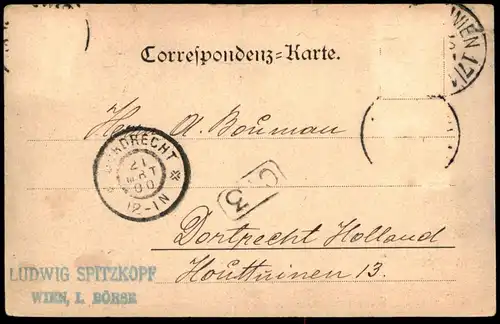 WIEN 17/1
Correspondenz=Karte.
Herrn A. Bouman
DORDRECHT
21
MRT
00
12-1N
C
3
Dortrecht Holland
Houttuinen 13.
LUDWIG SPITZKOPF
WIEN, I. BÖRSE